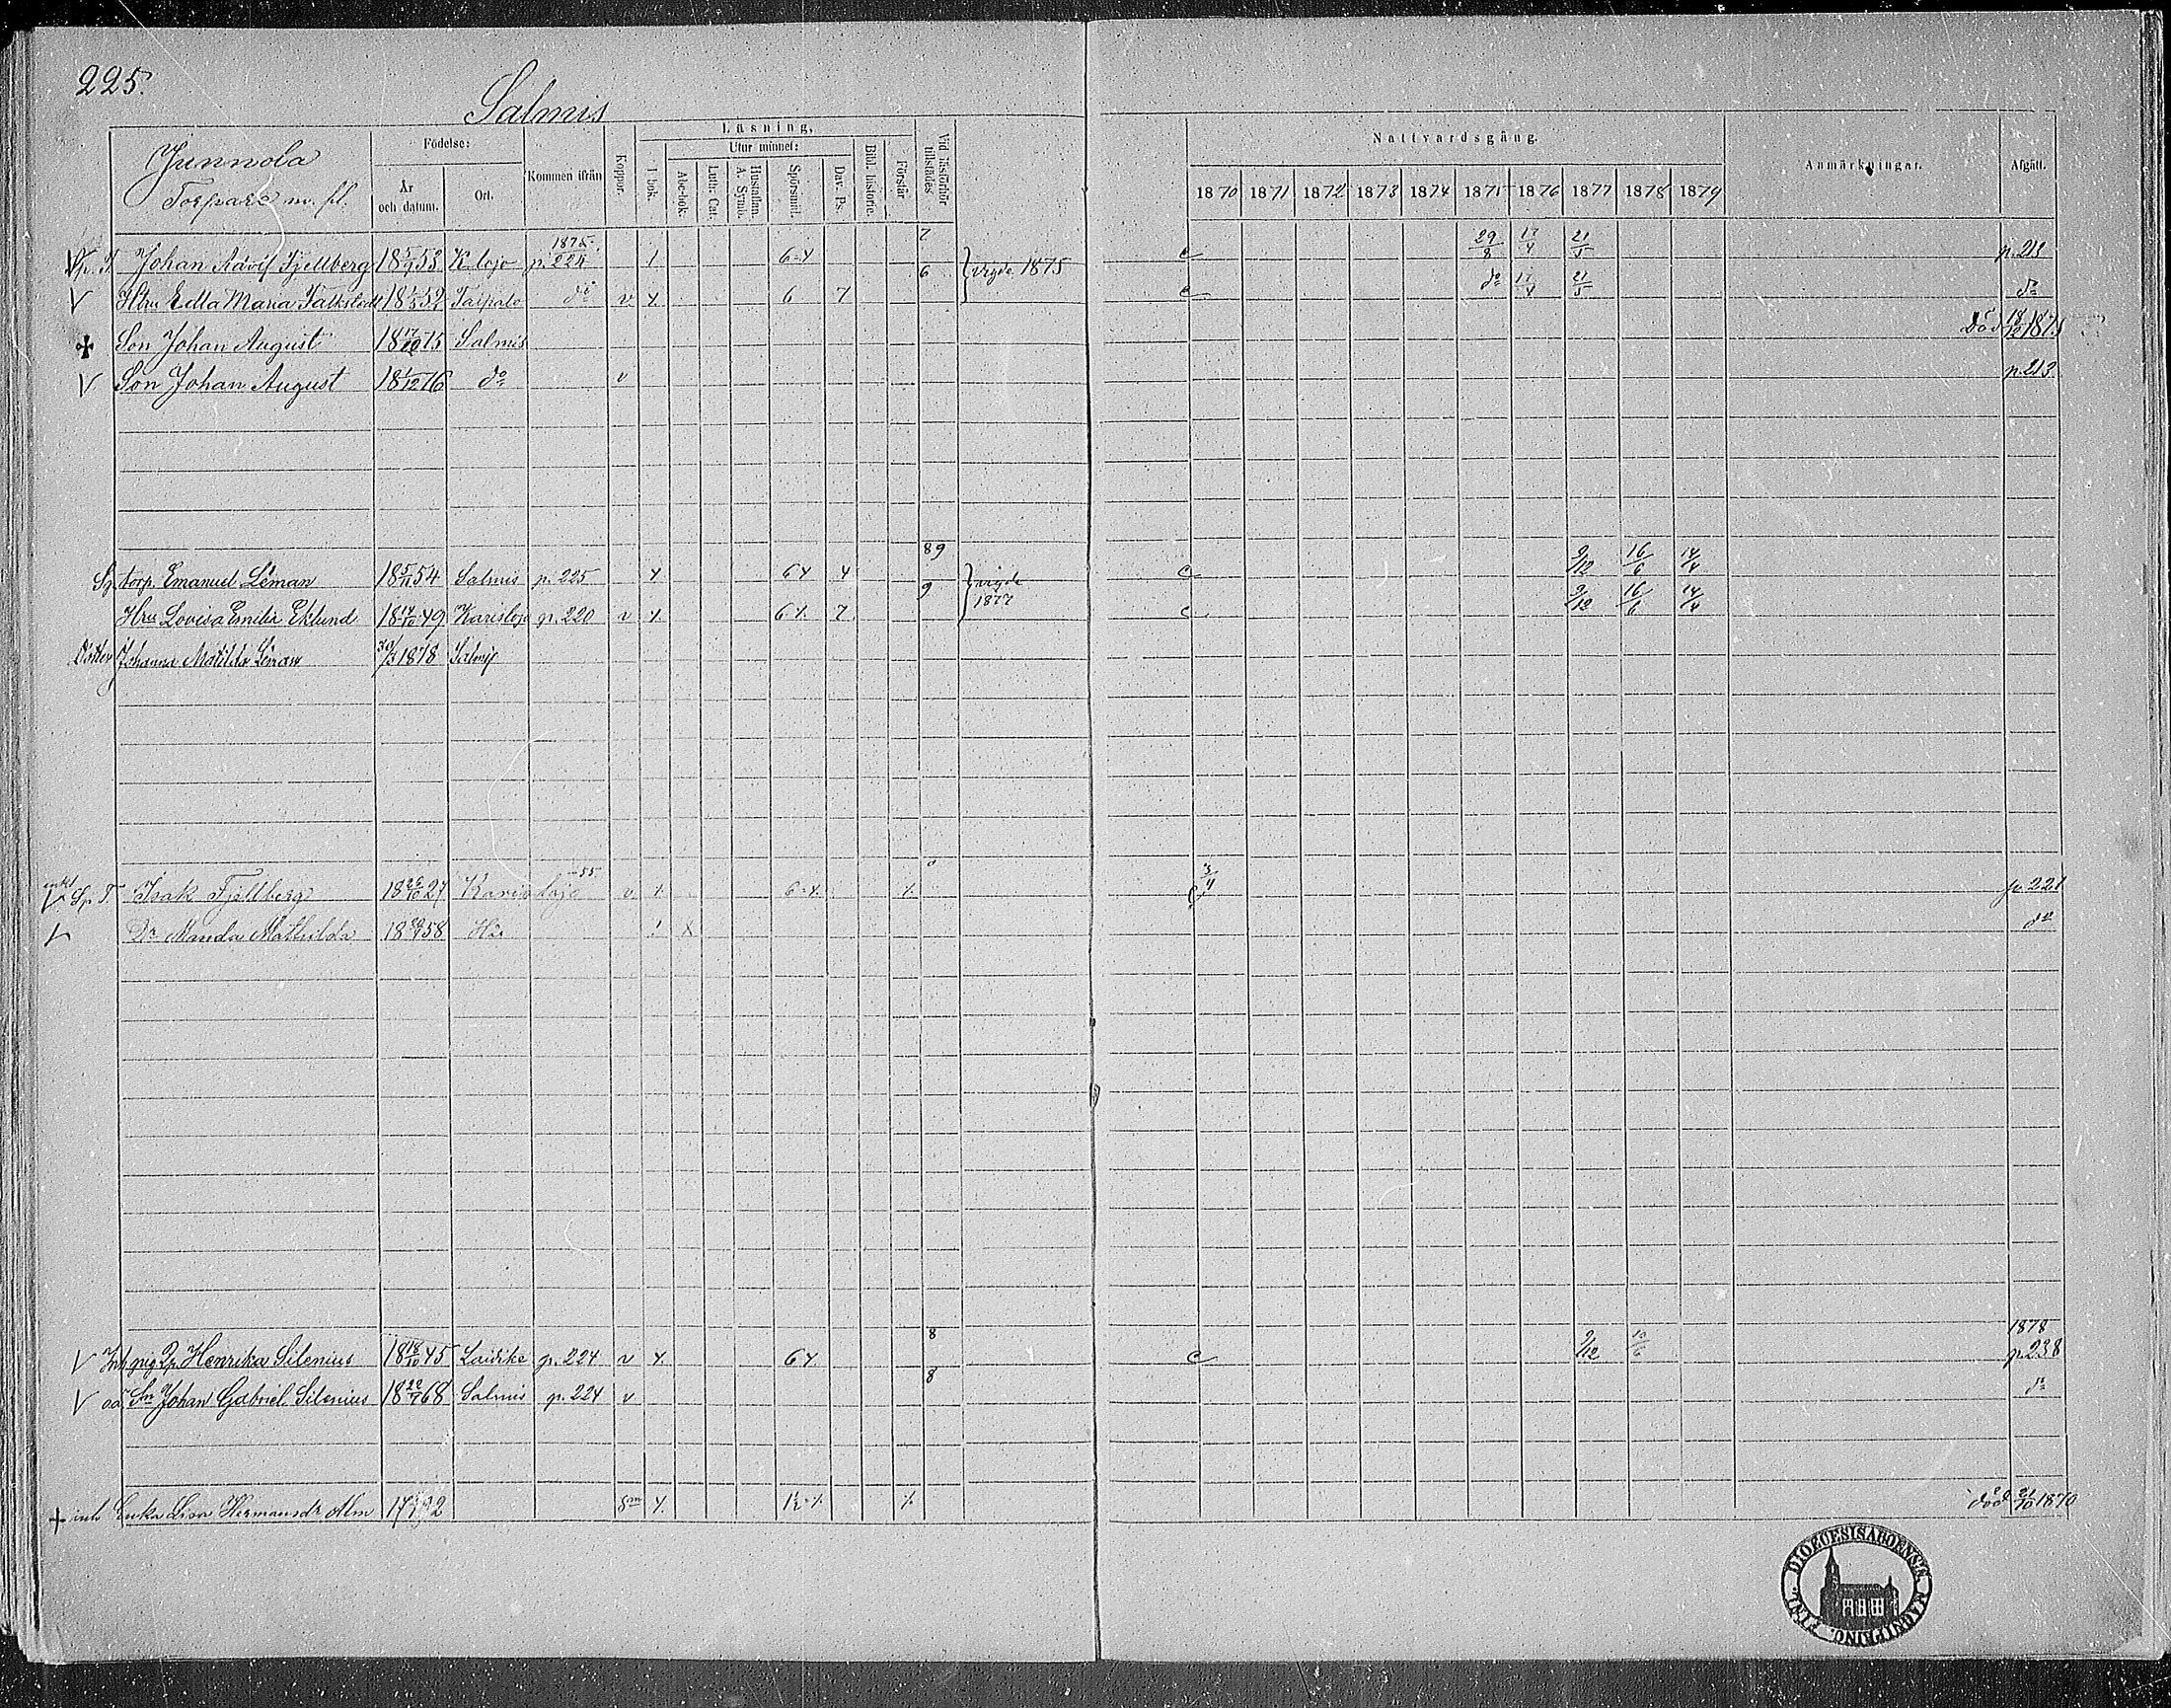 225.
Salmis
Junnola
Torpare m. fl.
Födelse:
År och datum.
Ort.
Kommen ifrån
Koppor.
Läsning,
I bok.
Utur minnet:
Abc-bok.
Luth. Cat.
Hustaflan. A. Symb.
Spörsmål.
Dav. Ps.
Bibl. historie.
Förstår
Vid läsförhör tillstädes.
Nattvardsgång.
1870 1871 1872 1873 1874 1875 1876 1877 1878 1879
Anmärkningar.
Afgått.
Sp. T. Johan Adolf Fjellberg 18 5/9 53 K. lojo 1875 p. 224 7 vigde 1875 29/8 17/4 21/5 p. 213
Hru Edla Maria Falkstedt Taipale do v 6 7 6 do 17/4 21/5 do
Son Johan August 18 17/10 75 Salmis Död 18/12 1875
Son Johan August 18 1/12 76 do v p. 213
Sp. torp. Emanuel Léman 18 5/11 54 Salmis p. 225 89 vigde 1877 9/12 16/6 14/4
Hru Lovisa Emilia Eklund 18 14/10 49 Karislojo p. 220 v 7 9 9/12 16/6 14/4
Dotter Johanna Matilda Léman 30/3 1878 Salmis
enkl Sp. T. Isak Fjellberg 18 26/10 27 Karislojo 55 v 3/4 p. 221
Dr Manda Mathilda 58 Här do
Inh pig Henrika Silenius 18 18/10 45 Laidike p. 224 v 8 9/12 10/6 1878 p. 238
oä Sn Johan Gabriel Silenius 18 22/7 68 Salmis p. 224 v 8 do
inh Lisa Hermansdr Alm död 21/10 1870
DIOECESIS ABOENSIS MAGNI PRINC. FINL.